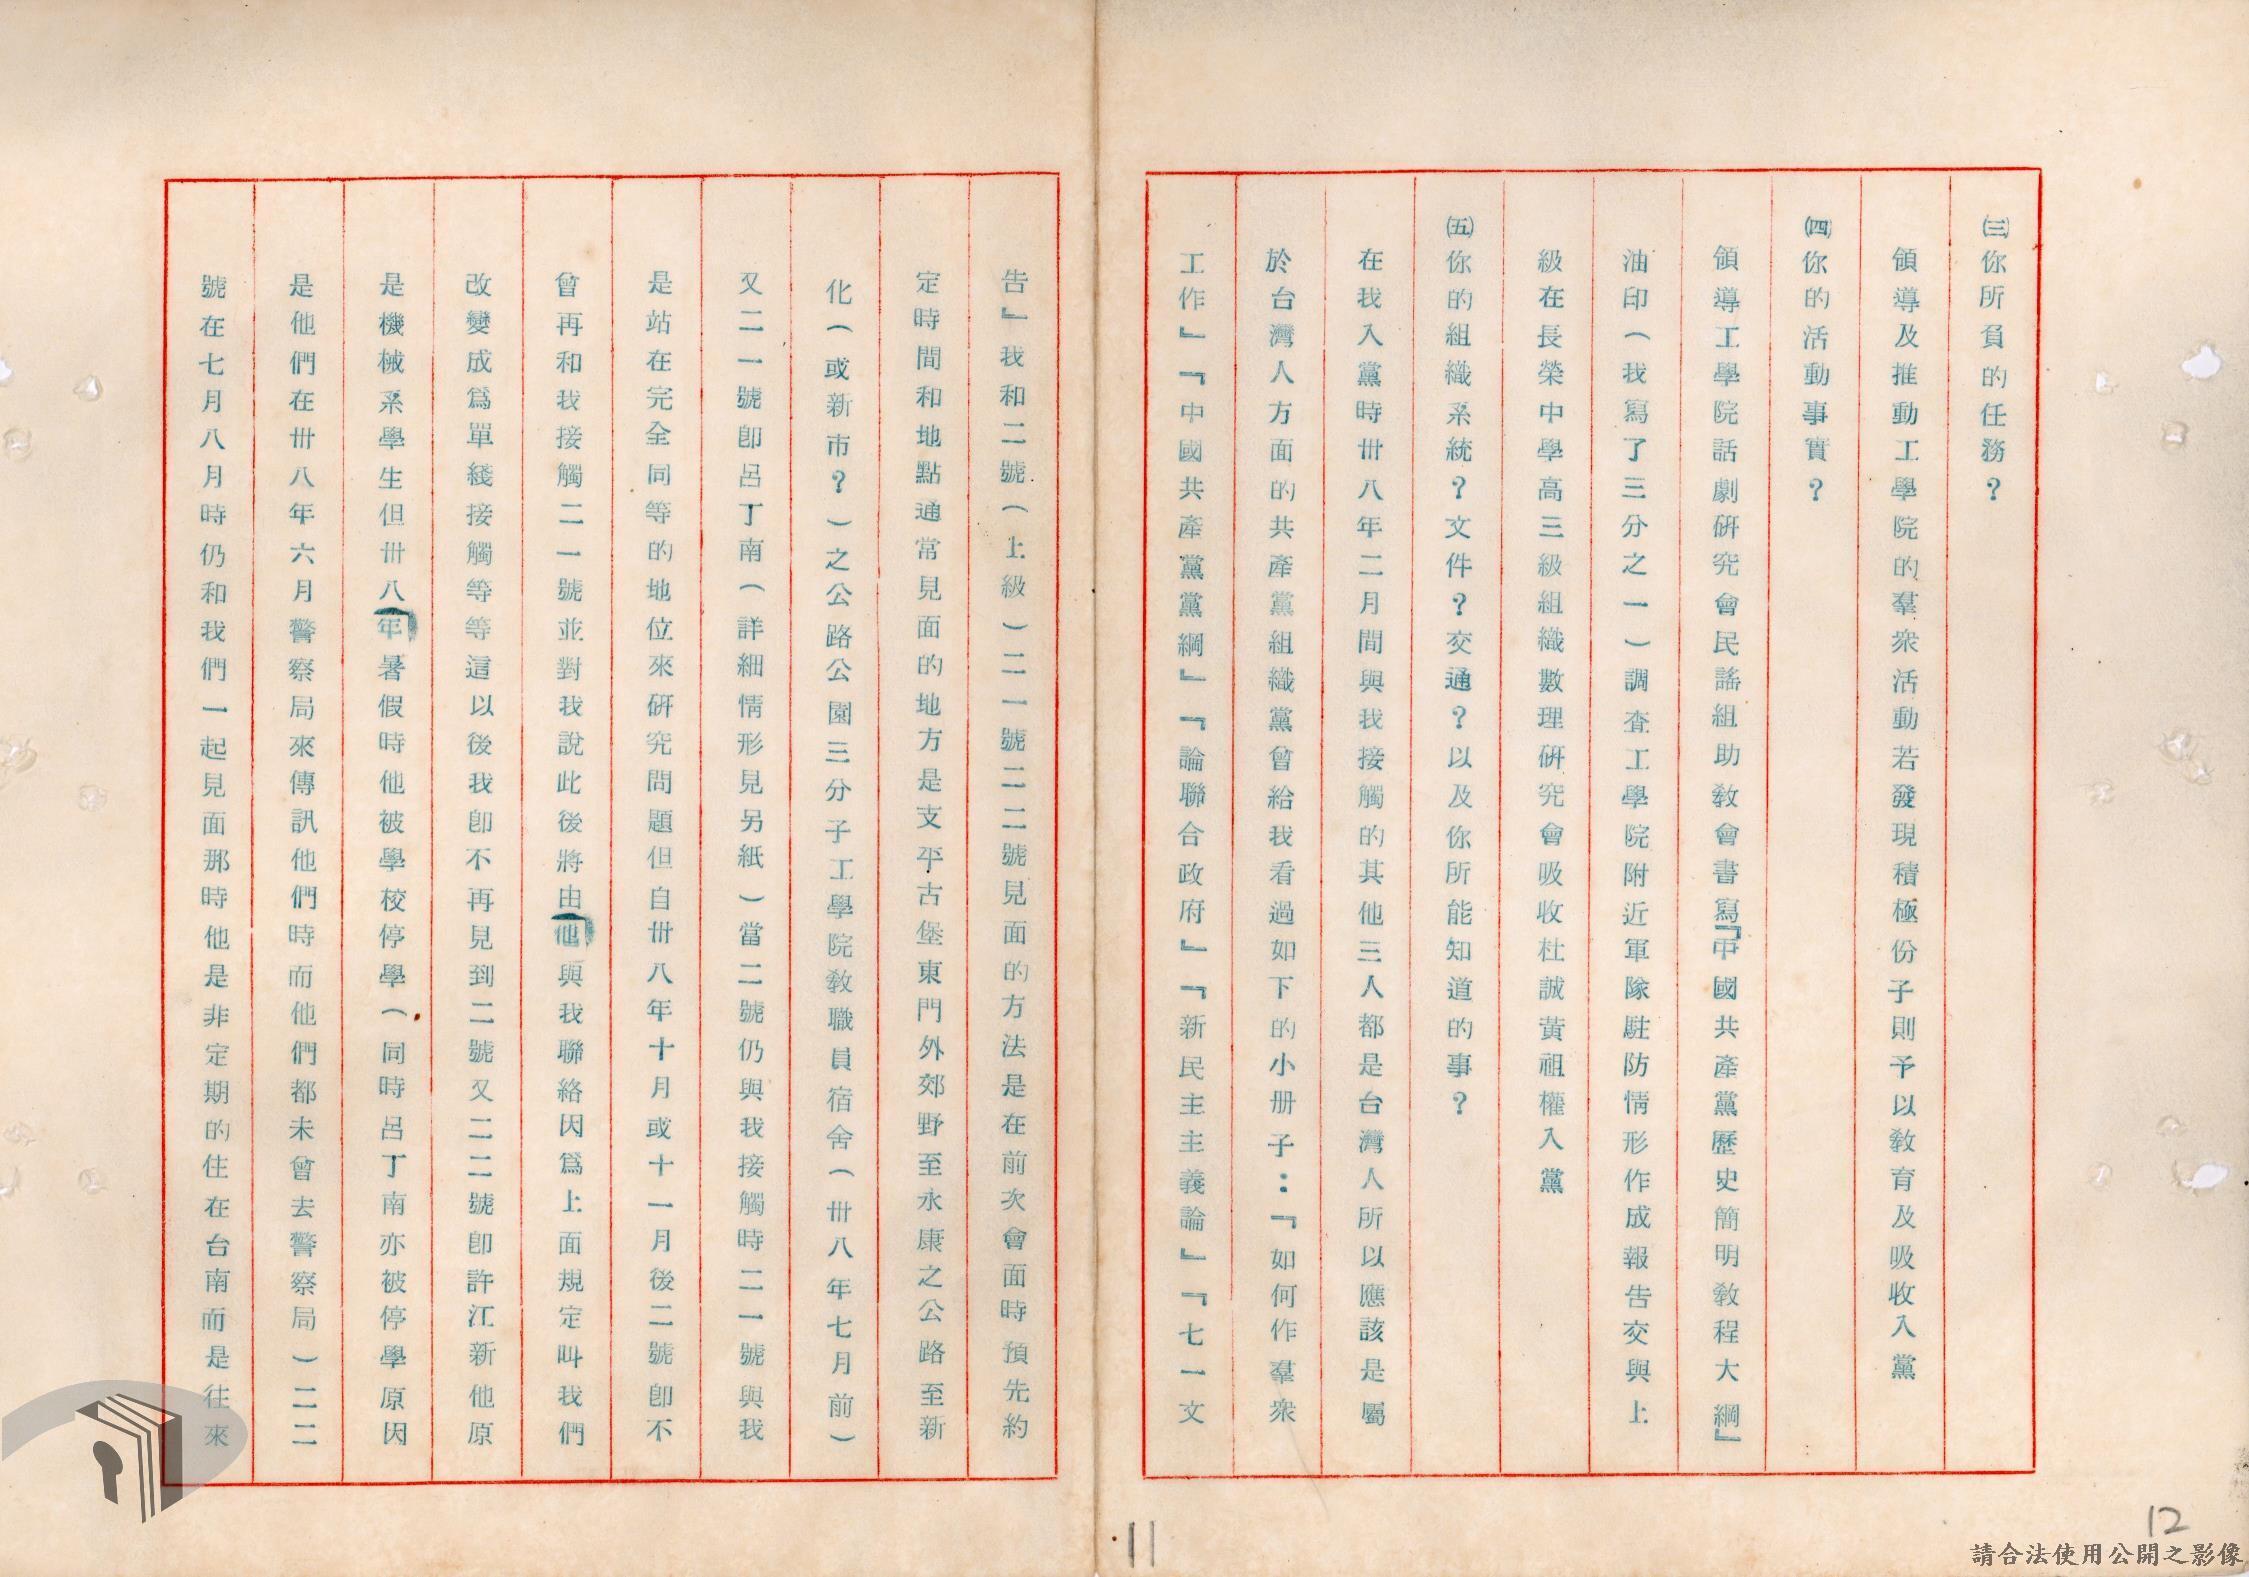 ㈢你所負的任務？
領導及推動工學院的羣衆活動若發現積極份子則予以敎育及吸收入黨
㈣你的活動事實？
領導工學院話劇硏究會民謠組助敎會書寫『中國共產黨歷史簡明敎程大綱』
油印（我寫了三分之一）調查工學院附近軍隊駐防情形作成報告交與上
級在長榮中學高三級組織數理硏究會吸收杜誠黃祖權入黨
㈤你的組織系統？文件？交通？以及你所能知道的事？
在我入黨時卅八年二月間與我接觸的其他三人都是台灣人所以應該是屬
於台灣人方面的共產黨組織黨曾給我看過如下的小册子：『如何作羣衆
工作』『中國共產黨黨綱』『論聯合政府』『新民主主義論』『七一文
告』我和二號（上級）二一號二二號見面的方法是在前次會面時預先約
定時間和地點通常見面的地方是支平古堡東門外郊野至永康之公路至新
化（或新市？）之公路公園三分子工學院敎職員宿舍（卅八年七月前）
又二一號卽呂丁南（詳細情形見另紙）當二號仍與我接觸時二一號與我
是站在完全同等的地位來硏究問題但自卅八年十月或十一月後二號卽不
曾再和我接觸二一號並對我說此後將由他與我聯絡因爲上面規定叫我們
改變成爲單綫接觸等等這以後我卽不再見到二號又二二號卽許江新他原
是機械系學生但卅八年暑假時他被學校停學（同時呂丁南亦被停學原因
是他們在卅八年六月警察局來傳訊他們時而他們都未曾去警察局）二二
號在七月八月時仍和我們一起見面那時他是非定期的住在台南而是往來
11
12
請合法使用公開之影像